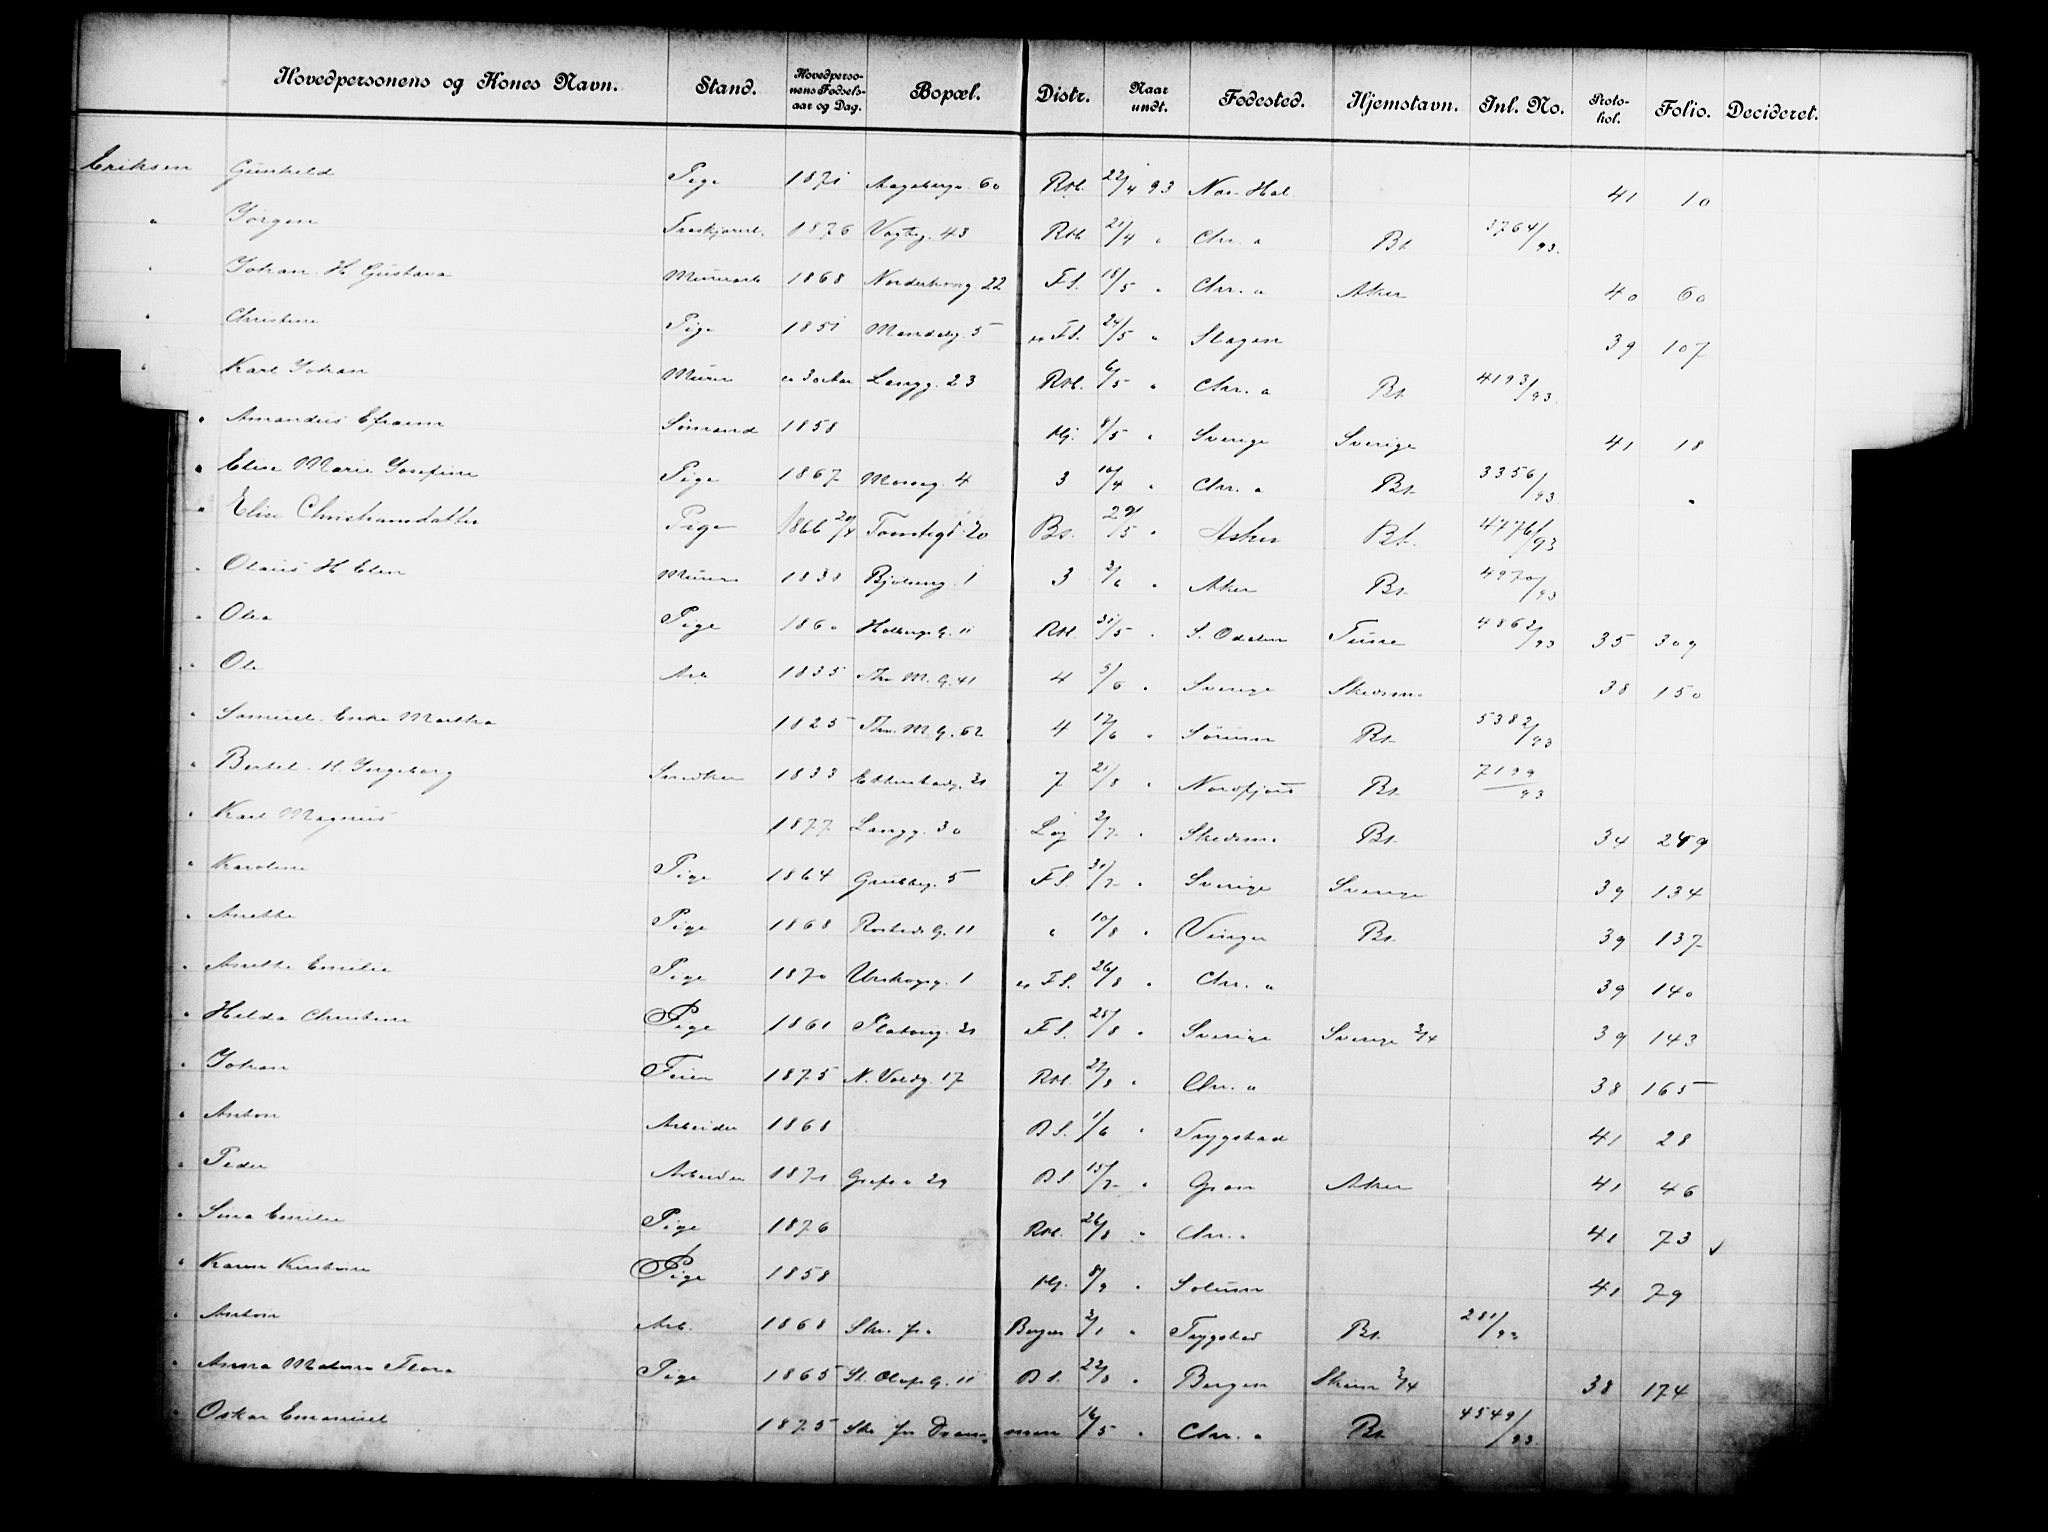 Hovedpersonens og Kones Navn. Stand. Hovedperso-nens Fødsels-aar og Dag. Bopæl. Distr. Naar undt. Fødested. Hjemstavn. Inl. No. Proto-kol. Folio. Decideret.
Eriksen Gunhild Pige 1871 60 Rst. 22/4 93 Nor. Hol. 41 10
" Jörgen 1876 Vogtsg. 43 Rst. 21/4 " Chr. a Bt. 3764/93.
" Johan H Gustava Murerarb 1868 22 FS. 18/5 " Chr. a Aker 40 60
" Christine Pige 1851 Mandalsg. 5 FS. 24/5 " Slagen 39 107
" Karl Johan Murer Langg. 23 Rst. 6/5 " Chr. a Bt. 4193/93.
" Amandus Efraim Sömand 1858 Hj. 8/5 " Sverige Sverige 41 18
" Elise Marie Josefine Pige 1867 Mosseg. 4 3 10/4 " Chr. a Bt. 3356/93
" Elise Christiansdatter Pige 1866 20/4 Tomtegd 20 Bs. 29/5 " Asker Bt. 4776/93
" Olaus H Elen Murer 1838 Bjølseng. 1 3 2/6 " Aker Bt. 4970/93
" Olea Pige 1860 Holbergs G. 11 Rst. 31/5 " S. Odalen Fure 4862/93 35 309
" Ole Arb 1835 Thv. M. G. 41 4 5/6 " Sverige Skedsmo 38 150
" Samuel Enke Martha 1825 Thv. M. G. 62 4 17/6 " Sörum Bt. 5382/93
" Bertel H. Ingeborg Snedker 1833 Etterstadg. 31 7 21/8 " Nordfjord Bt. 7199/93
" Karl Magnus 1877 Langg. 30 Løj 2/7 " Skedsmo Bt. 34 249
" Karoline Pige 1864 Grubbeg. 5 FS. 31/7 " Sverige Sverige 39 134
" Anette Pige 1868 Rosteds G. 11 " 10/8 " Vinger Bt. 39 137
" Anette Emilie Pige 1870 Urskogsg. 1 FS. 26/8 " Chr. a 39 140
" Hilda Christine Pige 1861 Platoug. 31 FS. 25/8 " Sverige Sverige 2/4 39 143
" Johan Feier 1875 N. Voldg. 17 Rst. 27/8 " Chr. a 38 165
" Anton Arbeider 1868 BS. 1/6 " Trygstad 41 28
" Peder Arbeider 1871 29 BS 15/7 " Gran Aker 41 46
" Sina Emilie Pige 1876 Rst. 26/8 " Chr. a 41 73
" Karen Kirstine Pige 1858 Hj. 8/9 " Solum 41 79
" Anton Arb. 1868 Skr. fra Bergen 2/1 " Trygstad Bt. 281/93
" Anna Flora Pige 1865 St. Olafs G. 11 BS. 22/8 " Bergen Skien 2/4 38 174
" Oskar Emanuel 1875 Skr fra Drammen 16/5 " Chr. a Bt 4549/93.